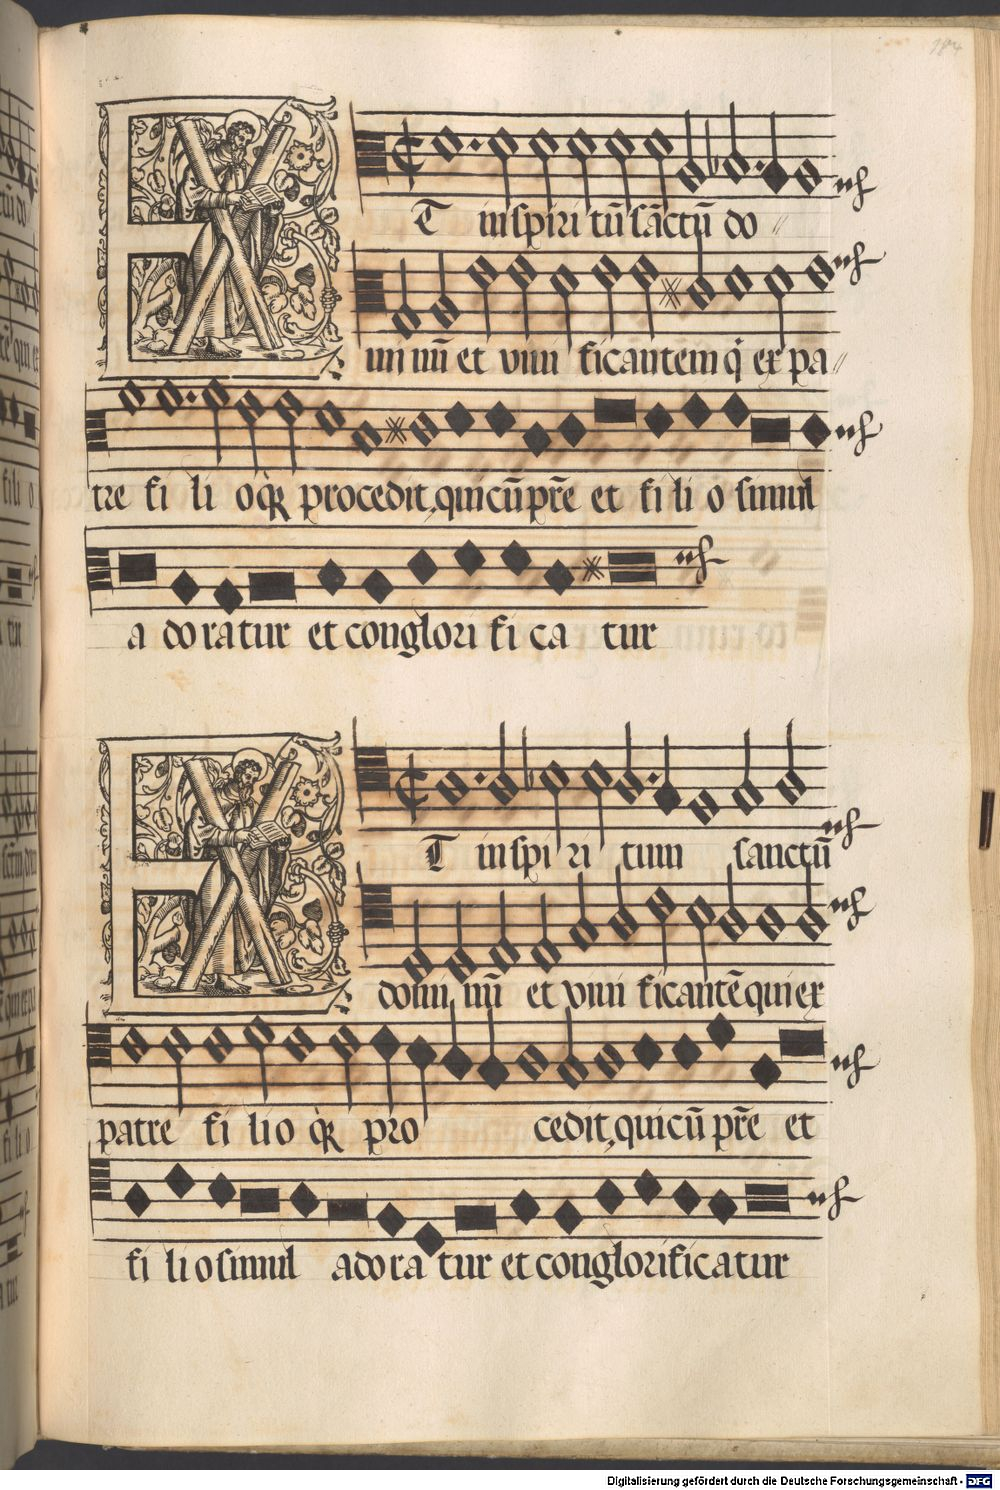 184
ET in spiri tū sāctū do
mi nū et vivi ficantem q̇ ex pa
tre fi li oq̇ꝫ procedit, qui cū pr̄e et fi li o simul
a do ra tur et conglori fi ca tur
ET in spi ri tum sanctū
domi nū et vivi ficantē qui ex
patre fi li o q̇ꝫ pro cedit, qui cū pr̄e et
fi li o simul ado ra tur et conglorificatur
Digitalisierung gefördert durch die Deutsche Forschungsgemeinschaft - DFG